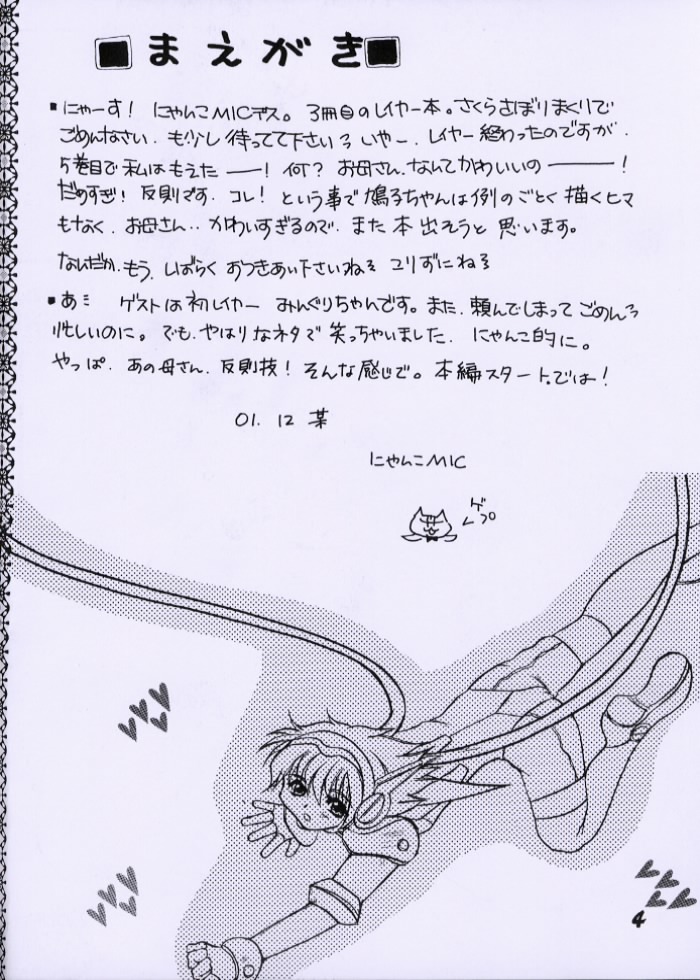 ■ まえがき ■
▪にゃーす! にゃんこMICデス。3冊目のレイヤー本。さくらさぼりまくりで
ごめんなさい.も少し待ってて下さいろ いやー.レイヤー終わったのですが.
5巻目で私はもえた――! 何? お母さん.なんてかわいいの――!
だめすぎ! 反則です.コレ! という事で鳩子ちゃんは例のごとく描くヒマ
もなく.お母さん‥かわいすぎるので.また本出そうと思います。
なんだか.もう.しばらくおつきあい下さいね こりずにね
▪あ ゲストは初レイヤー みんぐりちゃんです。また.頼んでしまってごめん
忙しいのに。でも.やはりなネタで笑っちゃいました.にゃんこ的に。
やっぱ.あの母さん.反則技! そんな感じで。本編スタート.では!
01. 12 某
にゃんこMIC
ゲプ
4